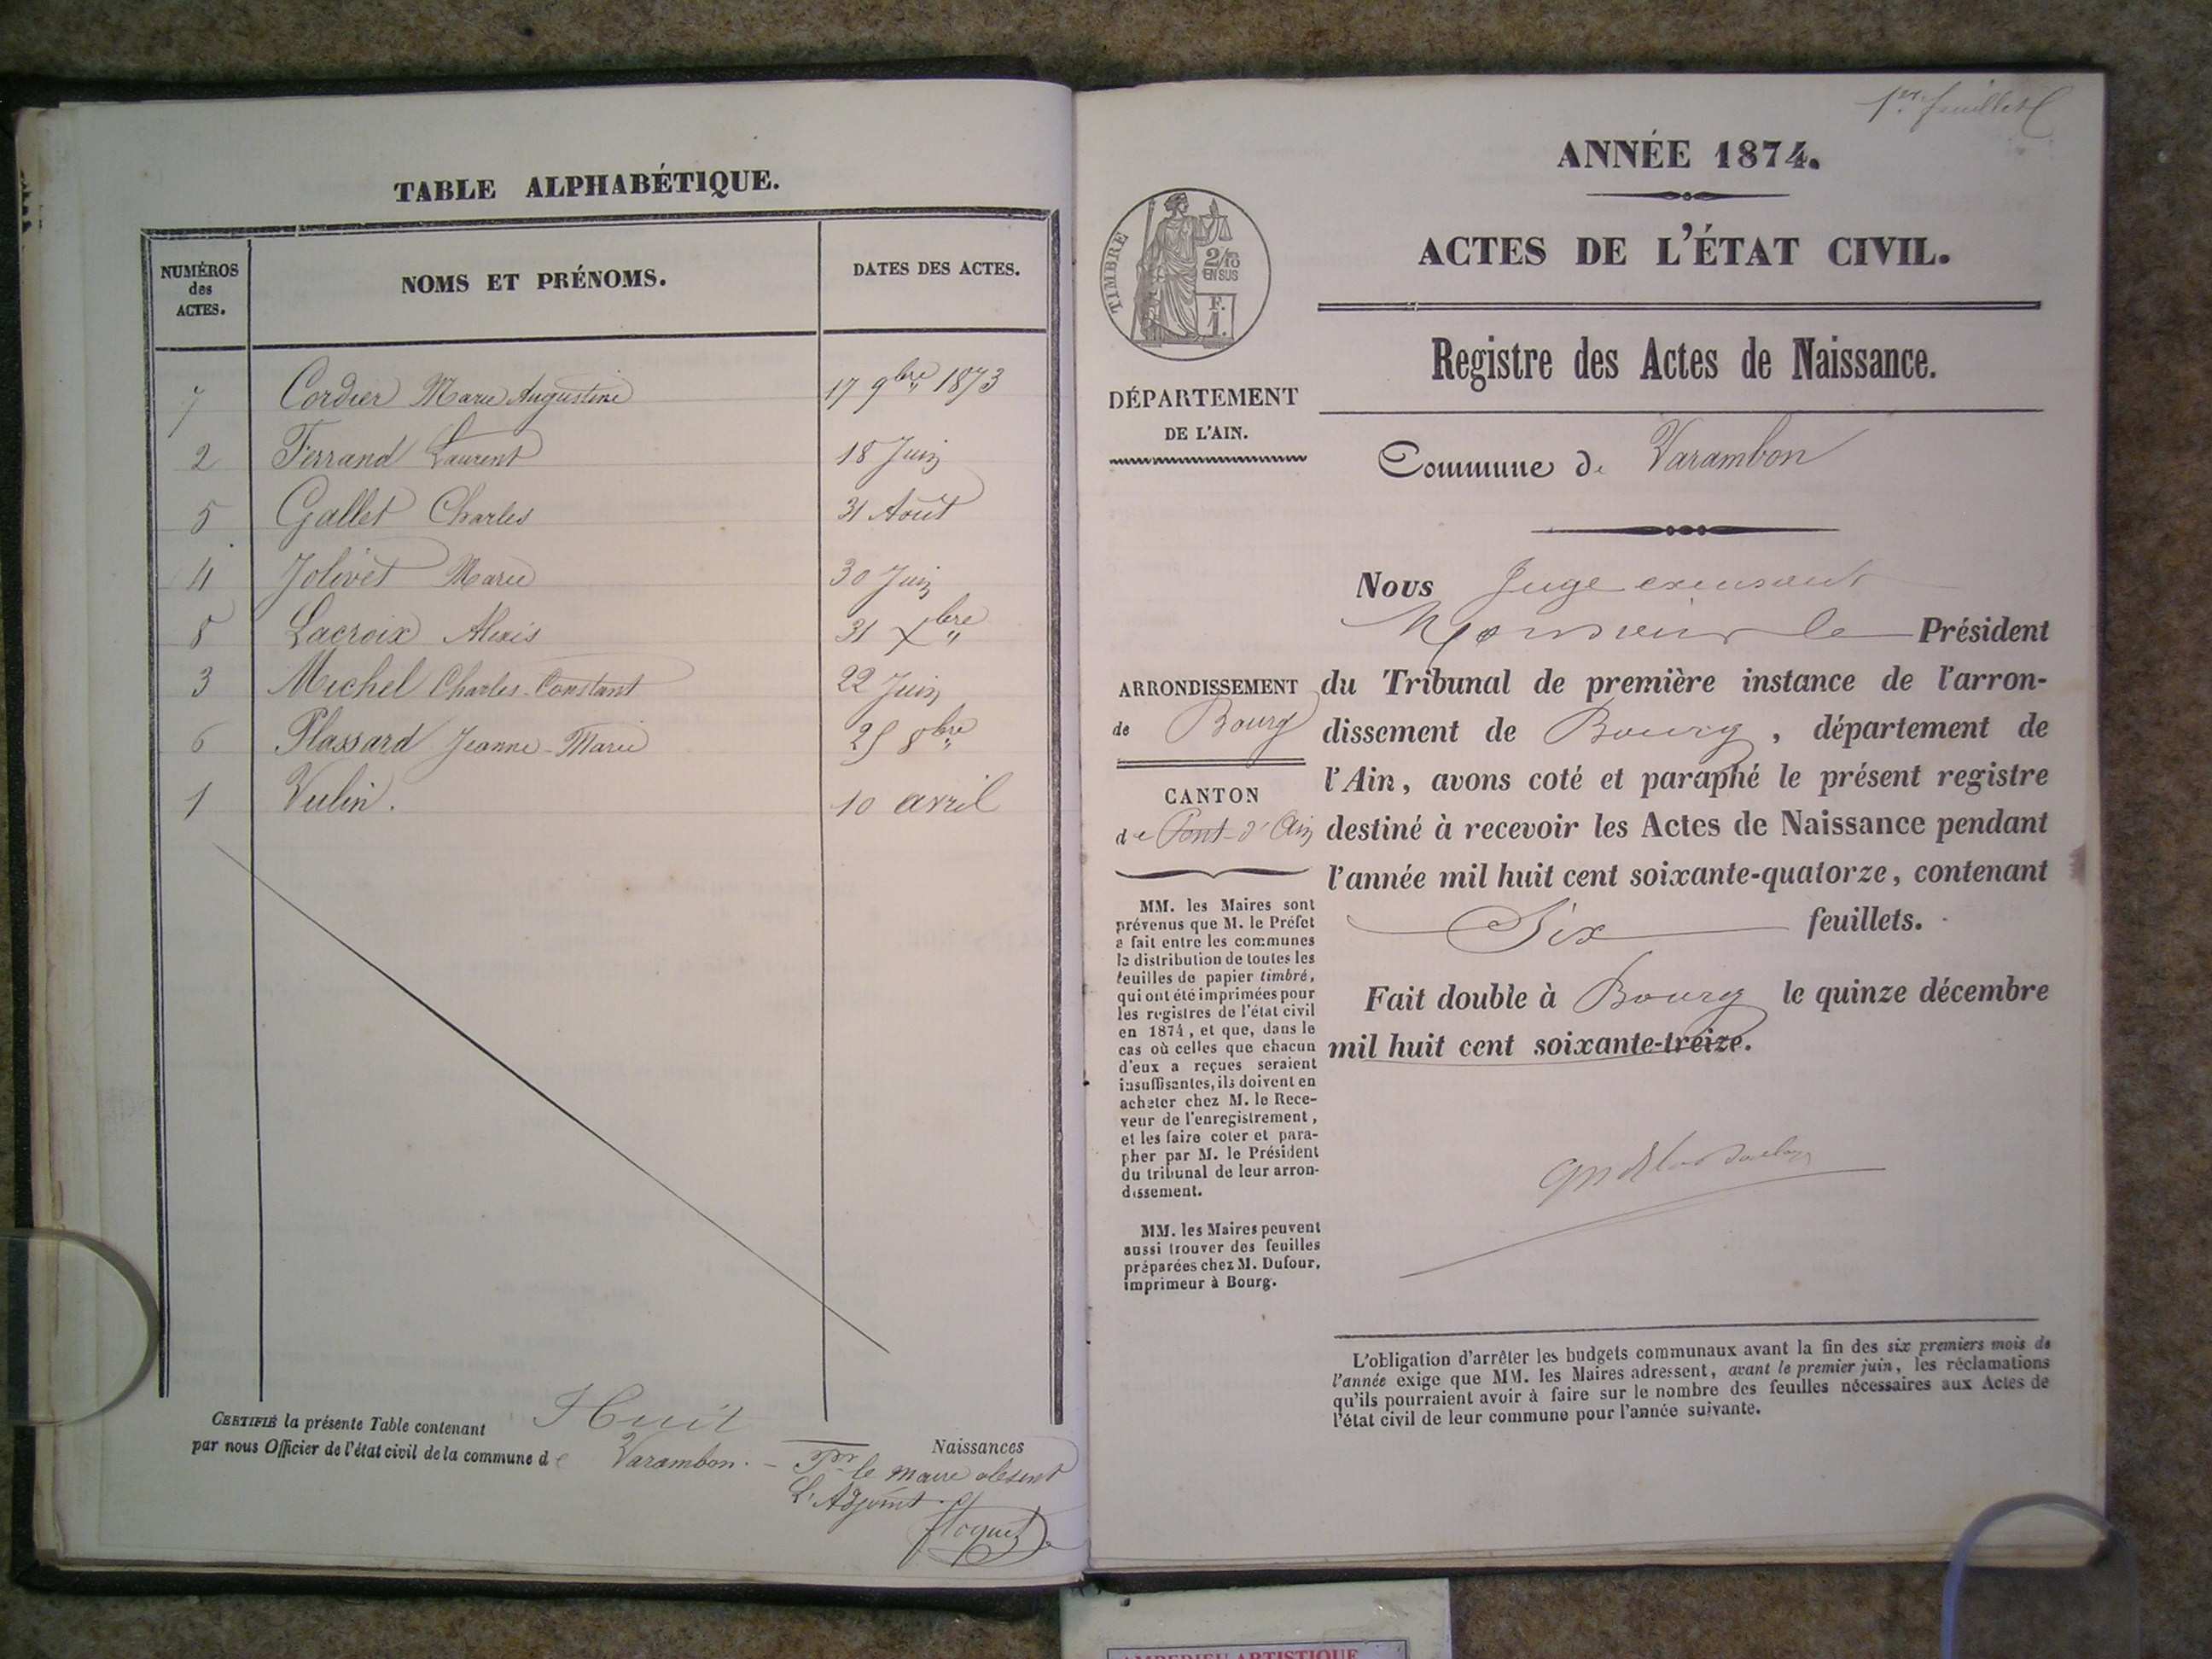 TABLE ALPHABÉTIQUE.
NUMÉROS
des
ACTES.
NOMS ET PRÉNOMS.
DATES DES ACTES.
7 Cordier Marie Augustine 17 9bre 1873
2 Ferrand Laurent 18 Juin
5 Gallet Charles 31 Août
4 Jolivet Marie 30 Juin
8 Lacroix Alexis 31 Xbre
3 Michel Charles-Constant 22 Juin
6 Plassard Jeanne-Marie 25 8bre
1 Vulin. 10 avril
CERTIFIÉ la présente Table contenant Huit Naissances
par nous Officier de l'état civil de la commune de Varambon. - Pr le maire absent
L'Adjoint
1er feuillet
ANNÉE 1874.
ACTES DE L'ÉTAT CIVIL.
Registre des Actes de Naissance.
TIMBRE
2/10
EN SUS
F.
1.
DÉPARTEMENT
DE L'AIN.
Commune de Varambon
Nous Juge
Monsieur le Président
du Tribunal de première instance de l'arron-
dissement de Bourg, département de
l'Ain, avons coté et paraphé le présent registre
destiné à recevoir les Actes de Naissance pendant
l'année mil huit cent soixante-quatorze, contenant
Six feuillets.
Fait double à Bourg le quinze décembre
mil huit cent soixante-treize.
ARRONDISSEMENT
de Bourg
CANTON
de Pont-d'Ain
MM. les Maires sont
prévenus que M. le Préfet
a fait entre les communes
la distribution de toutes les
feuilles de papier timbré,
qui ont été imprimées pour
les registres de l'état civil
en 1874, et que, dans le
cas où celles que chacun
d'eux a reçues seraient
insuffisantes, ils doivent en
acheter chez M. le Rece-
veur de l'enregistrement,
et les faire coter et para-
pher par M. le Président
du tribunal de leur arron-
dissement.
MM. les Maires peuvent
aussi trouver des feuilles
préparées chez M. Dufour,
imprimeur à Bourg.
L'obligation d'arrêter les budgets communaux avant la fin des six premiers mois de
l'année exige que MM. les Maires adressent, avant le premier juin, les réclamations
qu'ils pourraient avoir à faire sur le nombre des feuilles nécessaires aux Actes de
l'état civil de leur commune pour l'année suivante.
AMBERIEU ARTISTIQUE